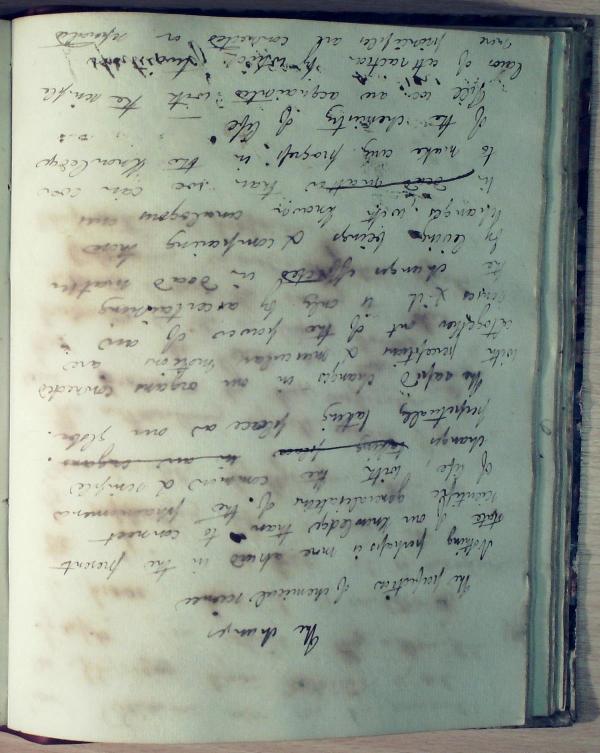 The changes
The perfection of chemical science
Nothing perhaps is more absurd in the present
state of our knowledge than to connect
scientific generalisations of the phænomena
of life, with the common & simple
changes taking place in our organs.
perpetually taking place on our globe.
The rapid changes in our organs connected
with perception & muscular motion are
altogether out of the powers of our
it is only by ascertaining
the changes effected in dead matter
by living beings & comparing these
changes with known analogous ones
in dead matter than we can ever
to make any progress in the knowledge
of the chemistry of life
Till we are acquainted with the simple
laws of attraction by which
more principles are connected or separated